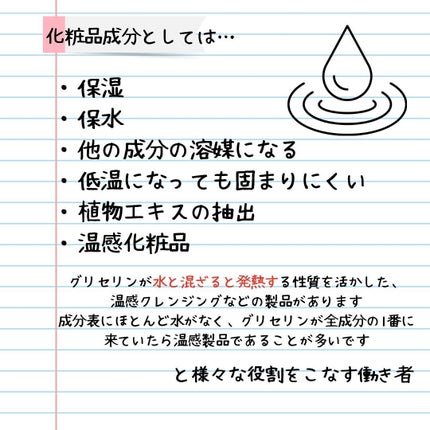 化粧品成分としては…
・保湿
・保水
・他の成分の溶媒になる
・低温になっても固まりにくい
・植物エキスの抽出
・温感化粧品
グリセリンが水と混ざると発熱する性質を活かした、
温感クレンジングなどの製品があります
成分表にほとんど水がなく、グリセリンが全成分の1番に
来ていたら温感製品であることが多いです
と様々な役割をこなす働き者